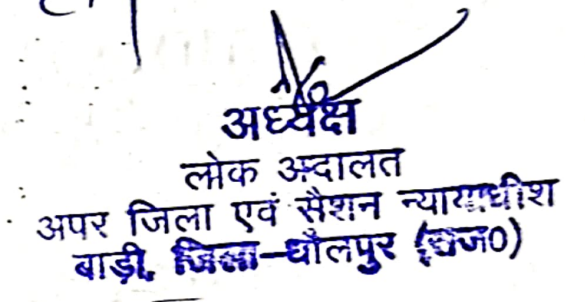 अध्यक्ष
लोक अदालत
अपर जिला एवं सैशन न्यायाधीश
बाड़ी, जिला-धौलपुर (राज0)